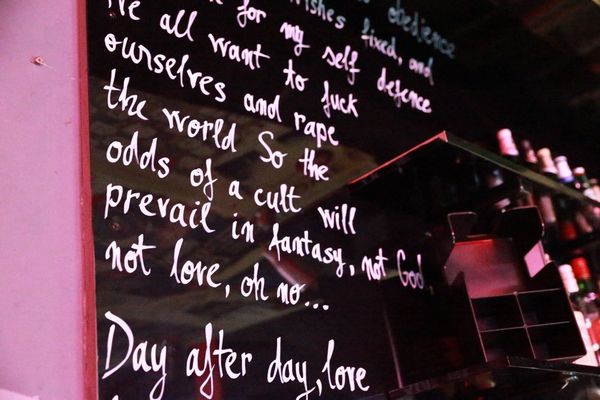 obedience
wishes fixed, and
for my self defence
We all want to fuck
ourselves and rape
the world So the
odds of a cult will
prevail in fantasy, not God,
not love, oh no...
Day after day, love